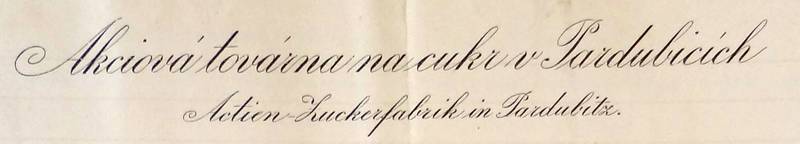 Akciová továrna na cukr v Pardubicích
Actien-Zuckerfabrik in Pardubitz.